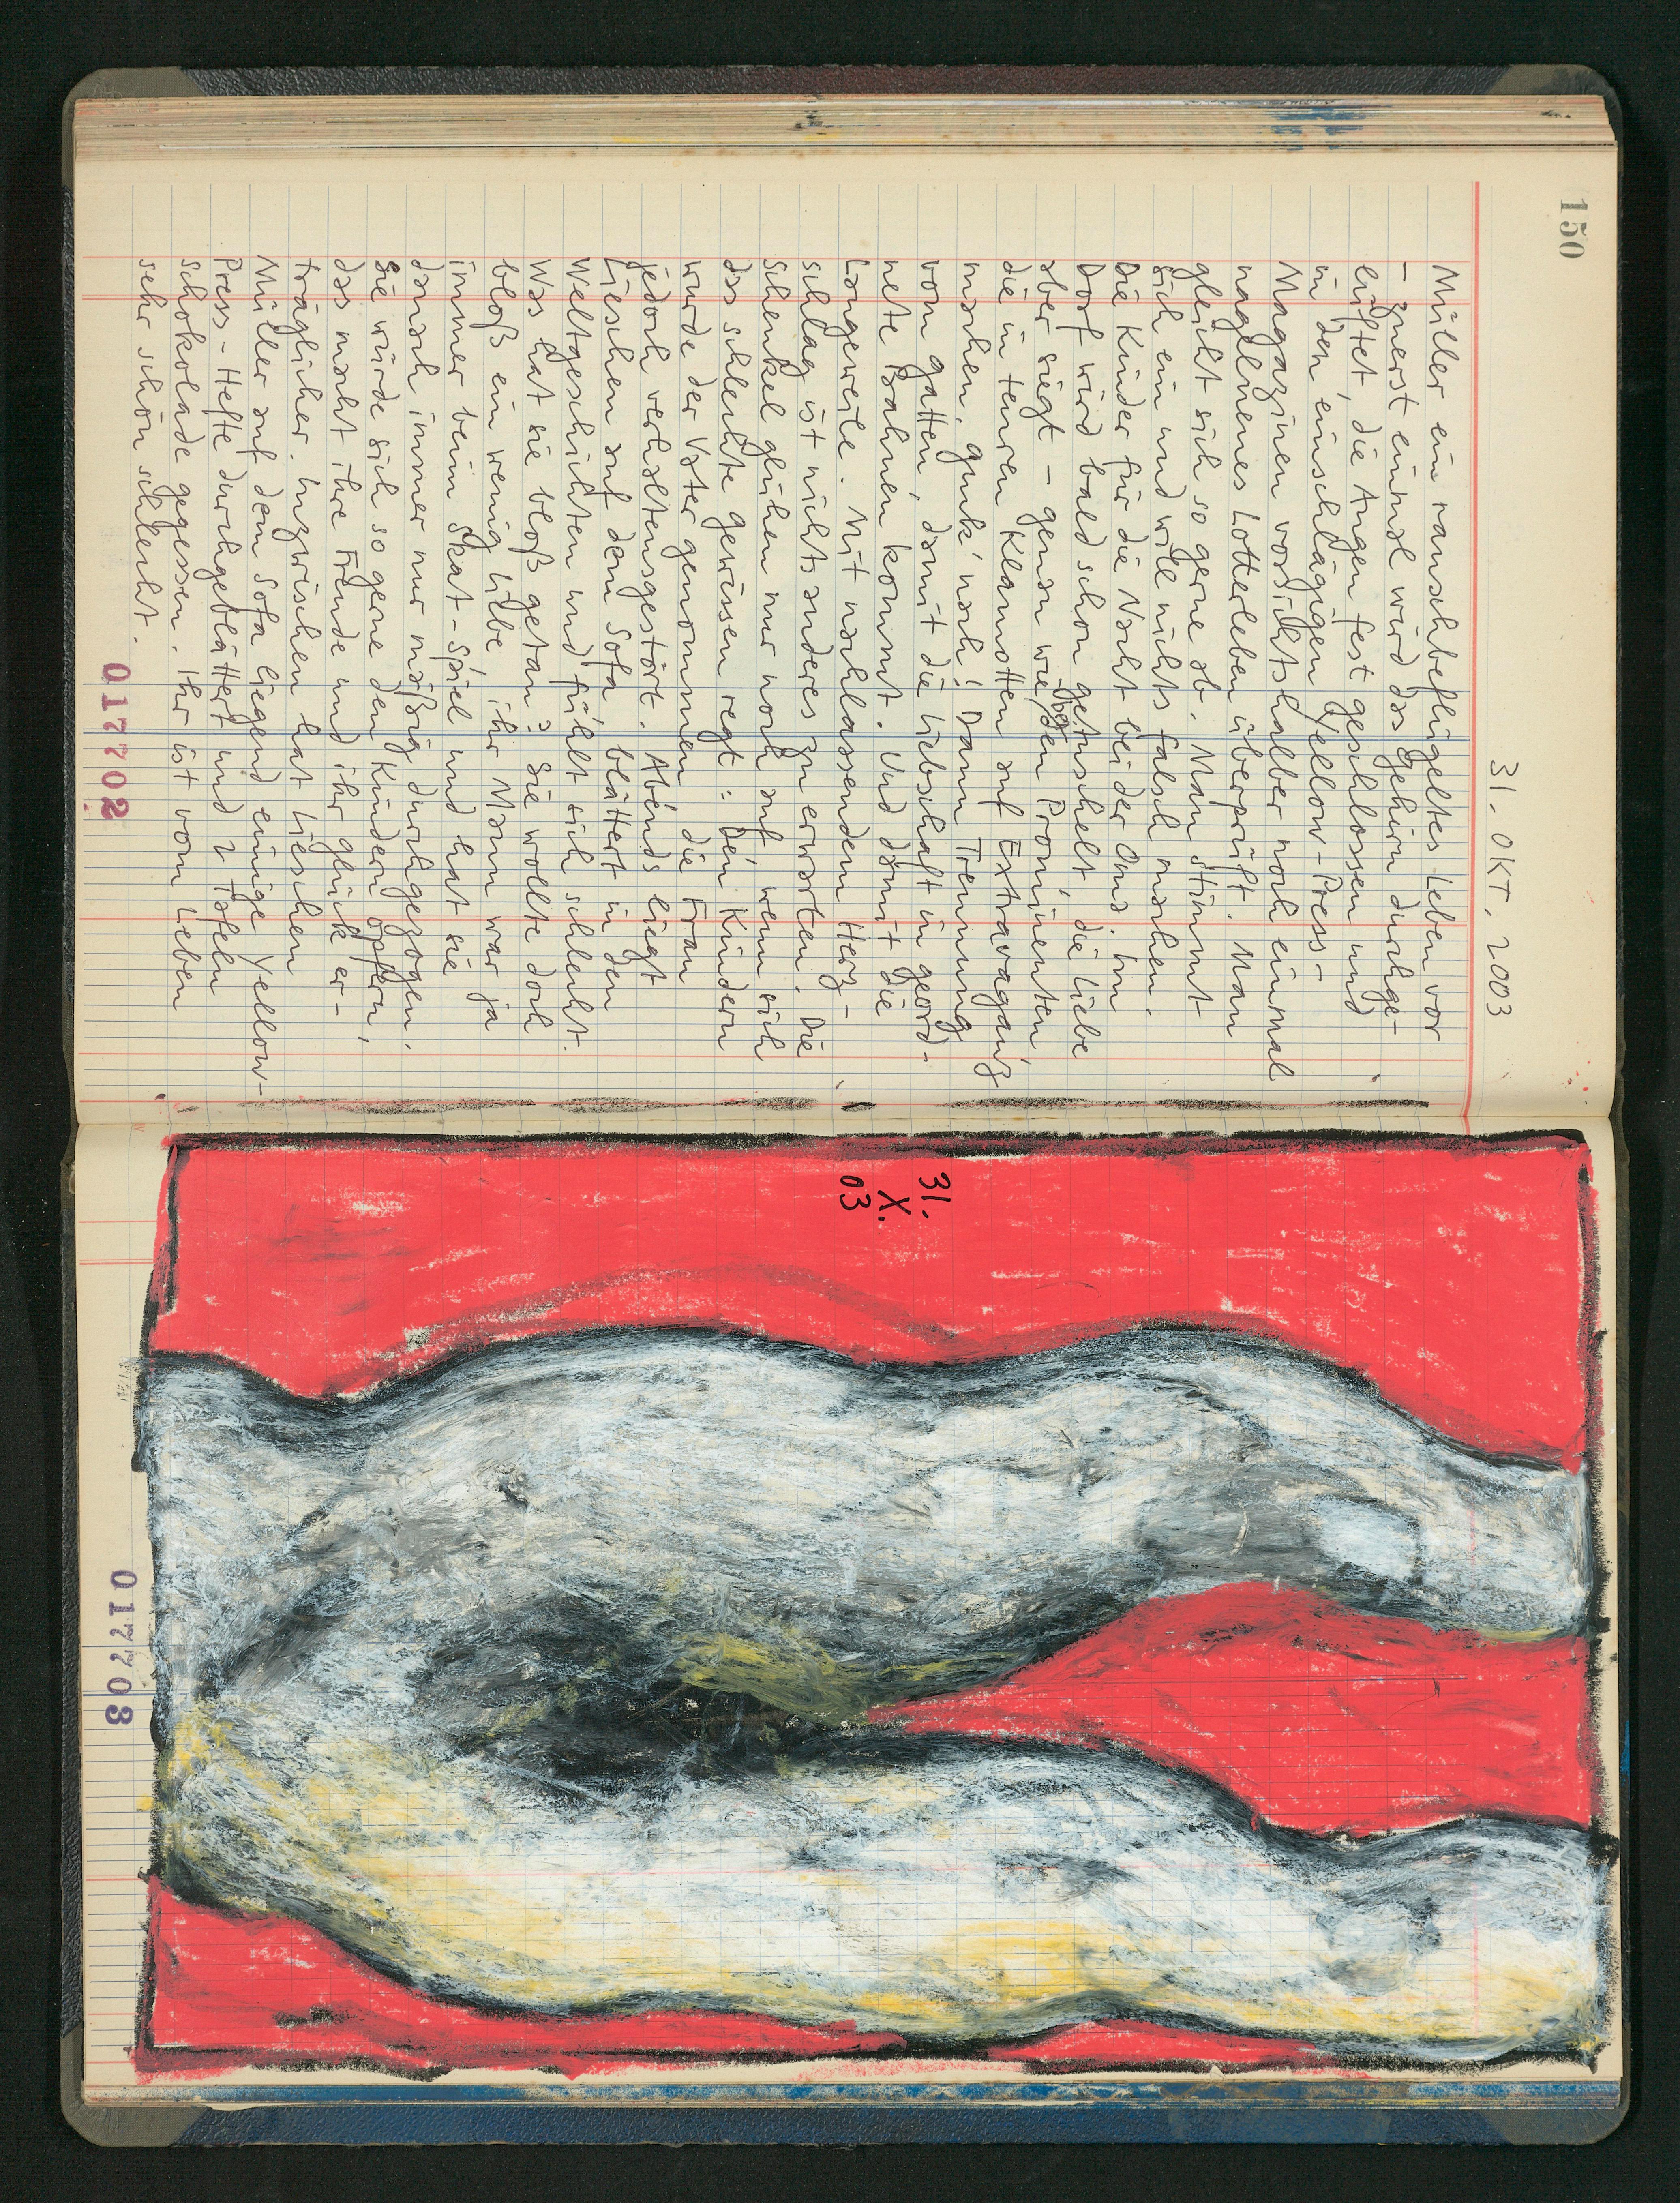 150
31. OKT. 2003
Müller ein rauschbeflügeltes Leben vor
– zuerst einmal wird das Gehirn durchge-
lüftet, die Augen fest geschlossen und
in den einschlägigen Yellow-Press-
Magazinen vorsichtshalber noch einmal
nagelneues Lotterleben überprüft. Man
gleicht sich so gerne ab. Man stimmt
sich ein und will nichts falsch machen.
Die Kinder für die Nacht bei der Oma. Im
Dorf wird bald schon getuschelt, die Liebe
aber siegt – genau wie bei den Prominenten,
die in teuren Klamotten auf Extravaganz
machen, guck' nach! Dann Trennung
vom Gatten, damit die Liebschaft in geord-
nete Bahnen kommt. Und damit die
Langeweile. Mit nachlassendem Herz-
schlag ist nichts anderes zu erwarten. Die
Schenkel glühen nur noch auf, wenn sich
das schlechte Gewissen regt: Den Kindern
wurde der Vater genommen, die Frau
jedoch verhaltensgestört. Abends liegt
Lieschen auf dem Sofa, blättert in den
Weltgeschichten und fühlt sich schlecht.
Was hat sie bloß getan? Sie wollte doch
bloß ein wenig Liebe, ihr Mann war ja
immer beim Skat-Spiel und hat sie
danach immer nur mäßig durchgezogen.
Sie würde sich so gerne den Kindern opfern,
das macht ihre Freude und ihr Glück er-
träglicher. Inzwischen hat Lieschen
Müller auf dem Sofa liegend einige Yellow-
Press-Hefte durchgeblättert und 2 Tafeln
Schokolade gegessen. Ihr ist vom Lieben
sehr schön schlecht.
017702
31.
X.
03
017703